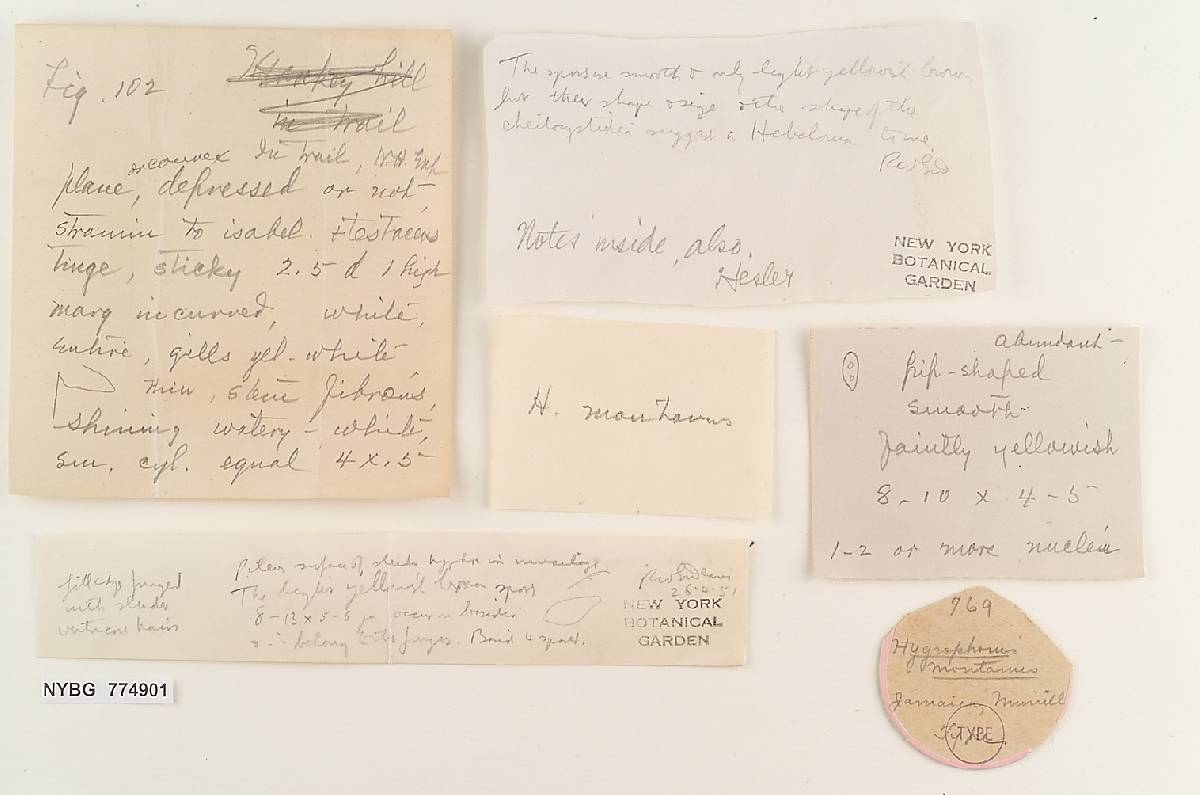 Fig. 102
Hill
in trail
or convex In trail, N.H. Gap
plane, depressed or not,
stramin to isabel. + testaceous
tinge, sticky 2.5 d 1 high
marg incurved, white,
entire, gills yel-white
thin, stem fibrous,
shining watery-white,
sm. cyl. equal 4 x .5
The spores are smooth & only light yellowish brown
but their shape & size & the shape of the
cheilocystidia suggest a Hebeloma to me.
Notes inside, also.
Hesler
NEW YORK
BOTANICAL
GARDEN
H. montanus
abundant-
pip-shaped
smooth
faintly yellowish
8-10 x 4-5
1-2 or more nuclei
gill edge fringed
with slender
ventricose hairs
Pileus surface of slender hyphae in mucilage
The light yellowish brown spores
8-12 x 5-6 µ occur on basidia
& ∴ belong to the fungus. Basid 4 spored.
25.4.51
NEW YORK
BOTANICAL
GARDEN
NYBG 774901
769
Hygrophorus
montanus
Jamaica, Murrill
Type
TYPE